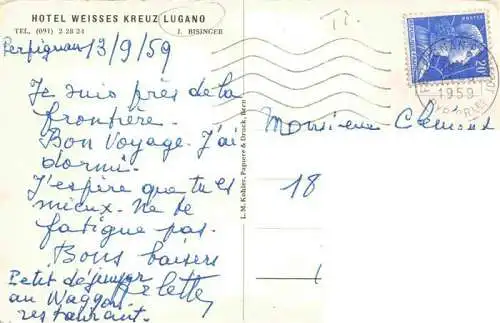 HOTEL WEISSES KREUZ LUGANO
TEL. (091) 2 28 24 J. BISINGER
Perpignan 13/9/59
Je suis près de la
frontière.
Bon Voyage. J'ai
dormi.
J'espère que tu es
mieux. Ne te
fatigue pas.
Bons baisers
Arlette
Petit déjeuner
au Waggon
restaurant.
L. M. Kohler, Papeterie & Druck, Bern
POSTES
1959
Monsieur Clément
18